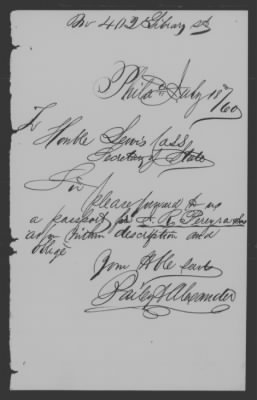 No 402 Library St
Philada July 18th/60
To
Honble Lewis Cass
Secretary of State
Sir
please forward to us
a passport for
as per within description and
oblige
Your Obt Servts
Bailey & Alexander